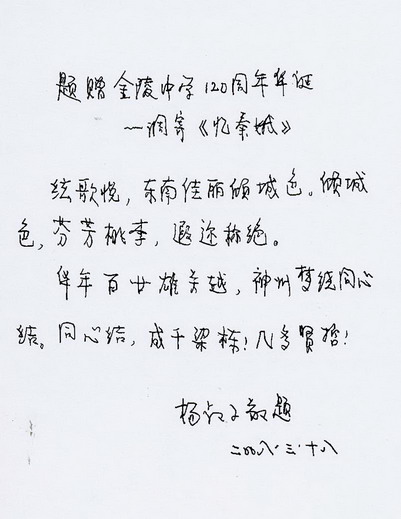 题赠金陵中学120周年华诞
—调寄《忆秦娥》
弦歌悦，东南佳丽倾城色。倾城
色，芬芳桃李，遐迩称绝。
华年百廿雄关越，神州梦绕同心
结。同心结，成千梁栋！几多贤哲！
杨叔子敬题
二00八.三.十八